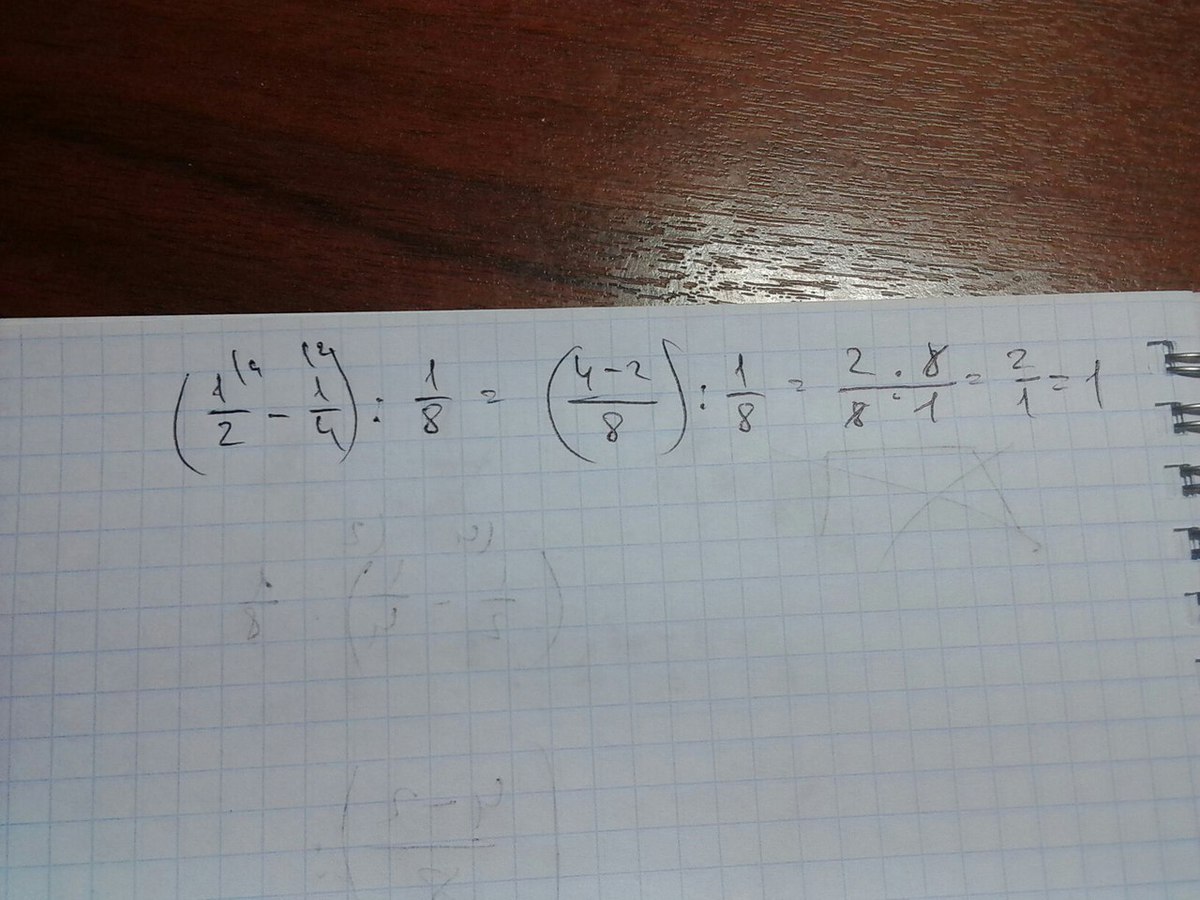 (1/2 - 1/4) : 1/8 = ((4-2)/8) : 1/8 = (2 · 8)/(8 · 1) = 2/1 = 1